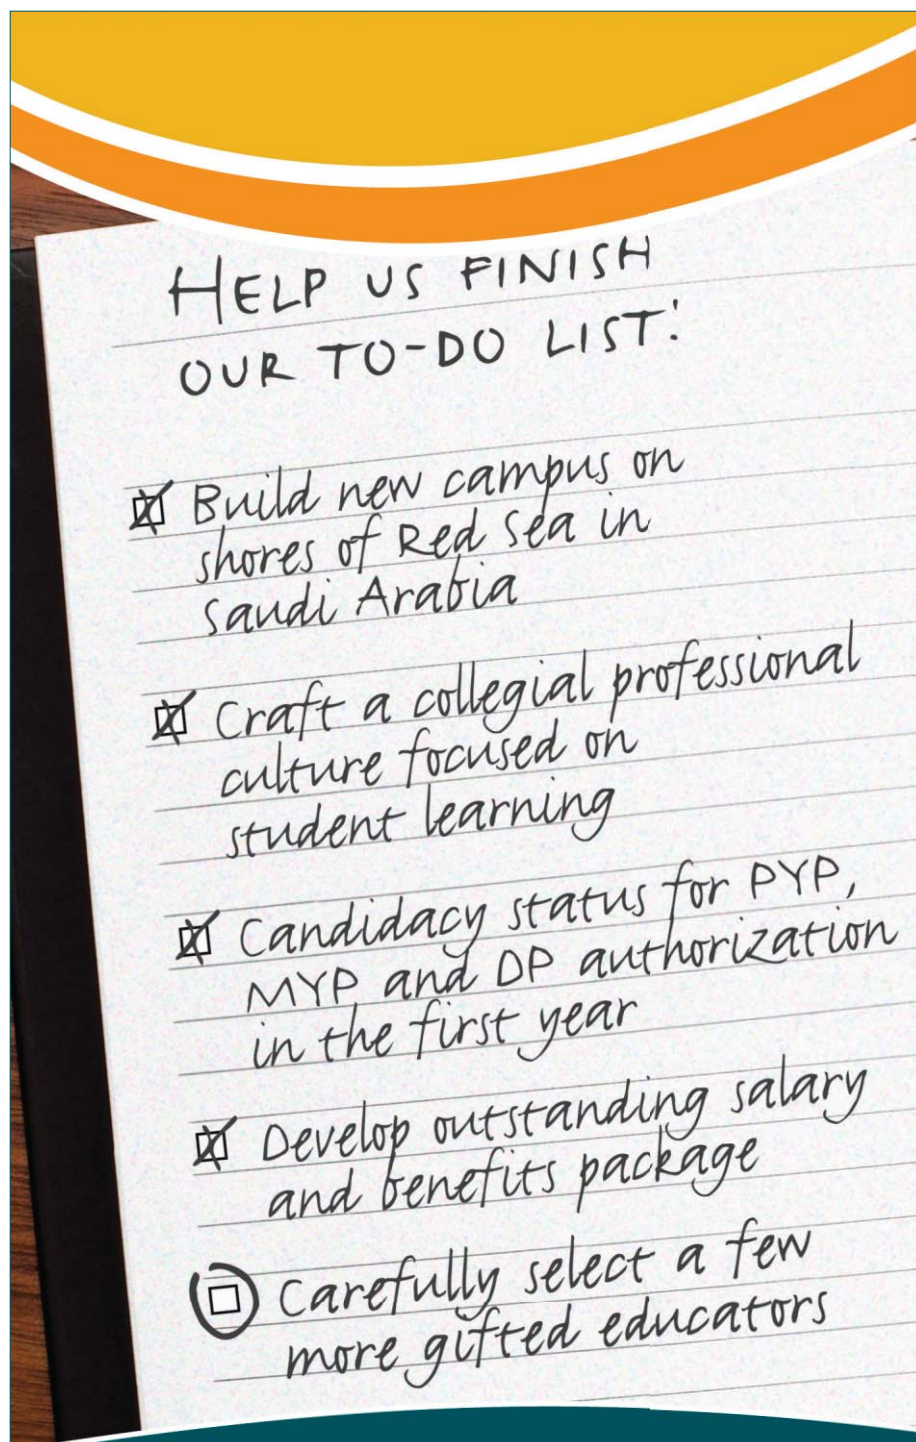 HELP US FINISH
OUR TO-DO LIST:
Build new campus on
shores of Red Sea in
Saudi Arabia
Craft a collegial professional
culture focused on
student learning
Candidacy status for PYP,
MYP and DP authorization
in the first year
Develop outstanding salary
and benefits package
Carefully select a few
more gifted educators